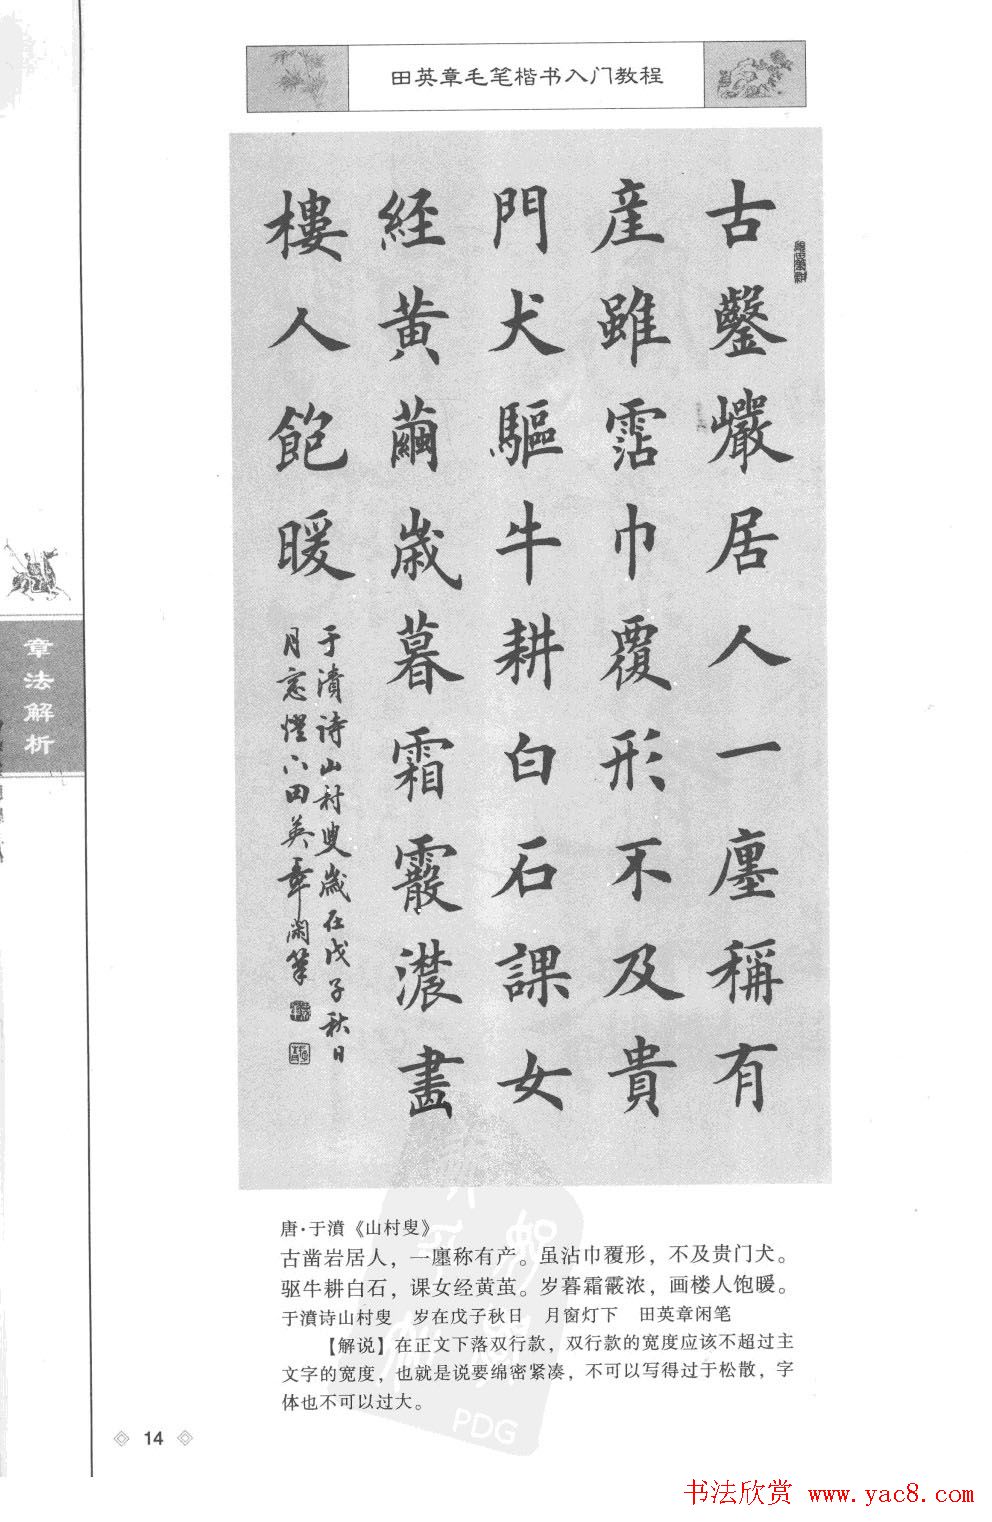 田英章毛笔楷书入门教程
古鑿巖居人一廛稱有
産雖霑巾覆形不及貴
門犬驅牛耕白石課女
經黄繭歳暮霜霰濃畫
樓人飽暖
于濆诗山村叟歲在戊子秋日
月窓燈下田英章闲筆
章法解析
唐·于濆《山村叟》
古凿岩居人，一廛称有产。虽沾巾覆形，不及贵门犬。
驱牛耕白石，课女经黄茧。岁暮霜霰浓，画楼人饱暖。
于濆诗山村叟　岁在戊子秋日　月窗灯下　田英章闲笔
【解说】在正文下落双行款，双行款的宽度应该不超过主
文字的宽度，也就是说要绵密紧凑，不可以写得过于松散，字
体也不可以过大。
PDG
14
书法欣赏 www.yac8.com